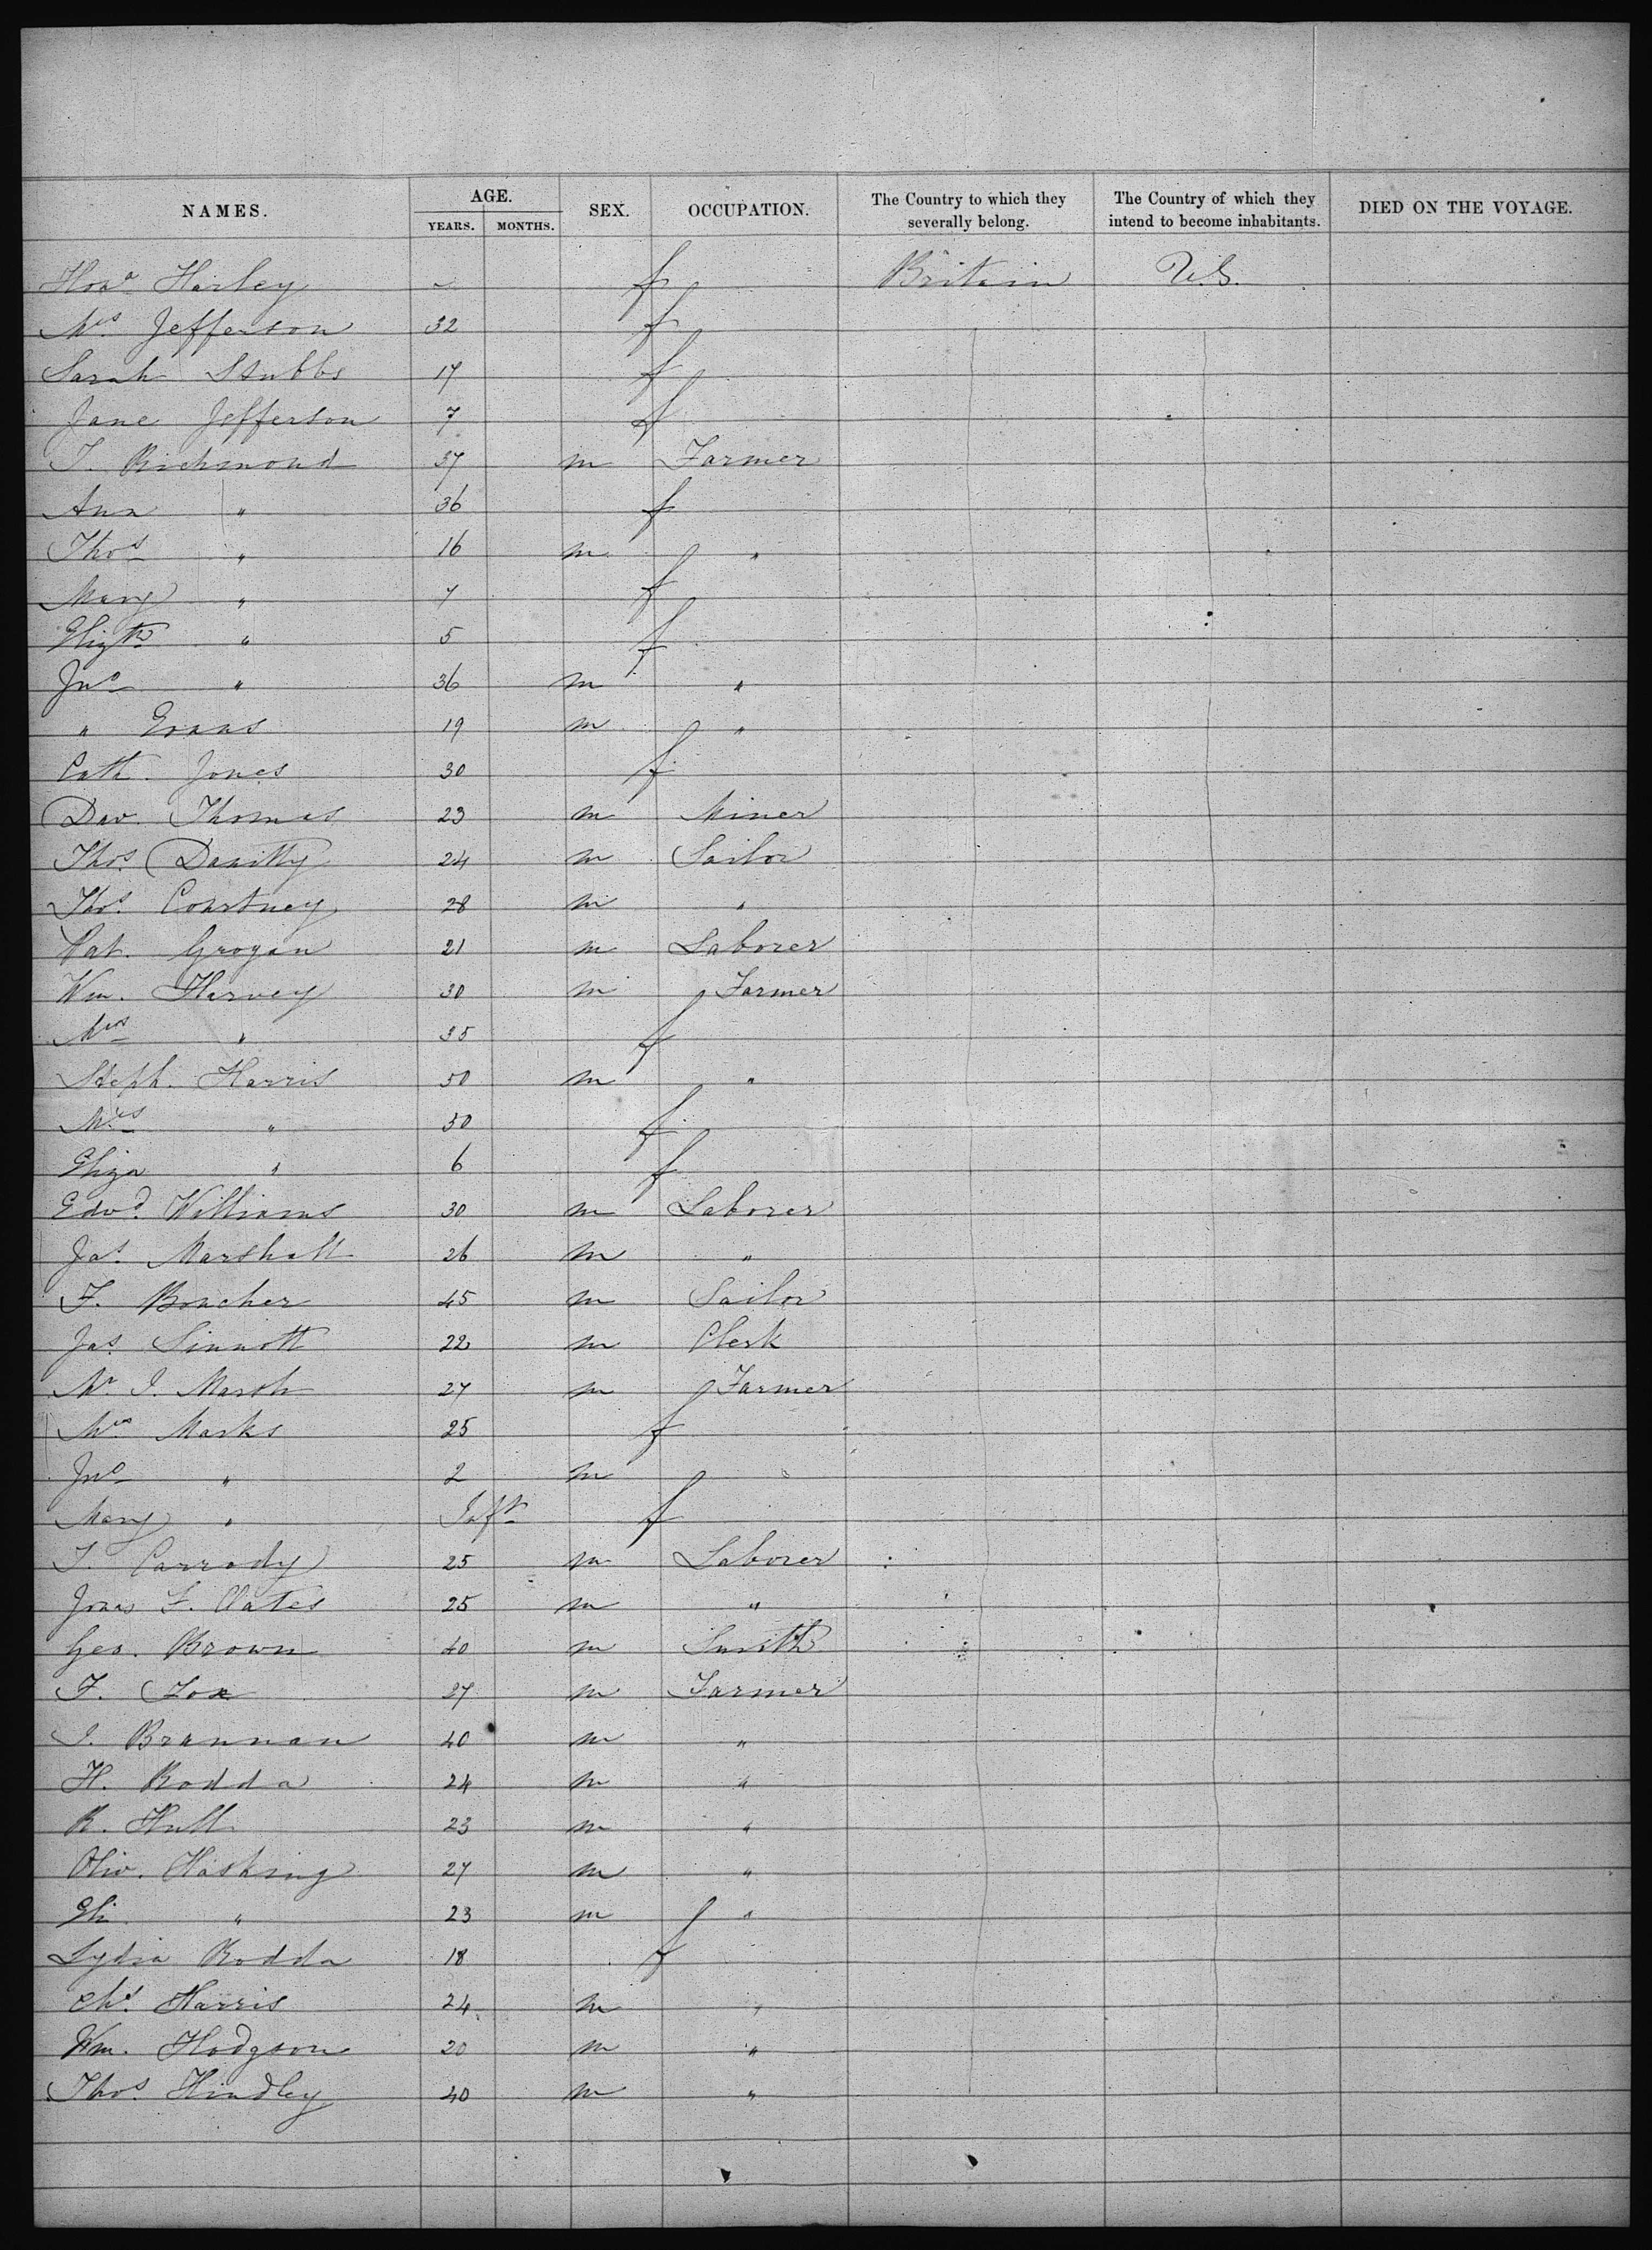 NAMES. AGE. YEARS. MONTHS. SEX. OCCUPATION. The Country to which they severally belong. The Country of which they intend to become inhabitants. DIED ON THE VOYAGE.
Hona Harley ~ f Britain U.S.
Mrs Jefferson 32 f
Sarah Stubbs 17 f
Jane Jefferson 7 f
T. Richmond 37 m Farmer
Ann " 36 f
Thos " 16 m "
Mary " 7 f
Elizth " 5 f
Jno " 36 m "
" Evans 19 m "
Cath. Jones 30 f
Dav. Thomas 23 m Miner
Thos. Danilly 24 m Sailor
Thos. Courtney 28 m "
Pat. Grogan 21 m Laborer
Wm. Harvey 30 m Farmer
Mrs " 35 f
Steph. Harris 50 m "
Mrs " 50 f
Eliza " 6 f
Edwd. Williams 30 m Laborer
Jas. Marshall 26 m "
F. Boucher 45 m Sailor
Jas. Sinnott 22 m Clerk
Mr J. Marsh 27 m Farmer
Mrs Marks 25 f
Jno " 2 m
Mary " Inft f
T. Carrody 25 m Laborer
Jonas F. Oates 25 m "
Geo. Brown 40 m Smith
F. Fox 27 m Farmer
J. Brannan 40 m "
H. Rodda 24 m "
R. Hull 23 m "
Oliv. Hosking 27 m "
Eli " 23 m "
Lydia Rodda 18 f
Chs. Harris 24 m "
Wm. Hodgson 20 m "
Thos. Hindley 40 m "